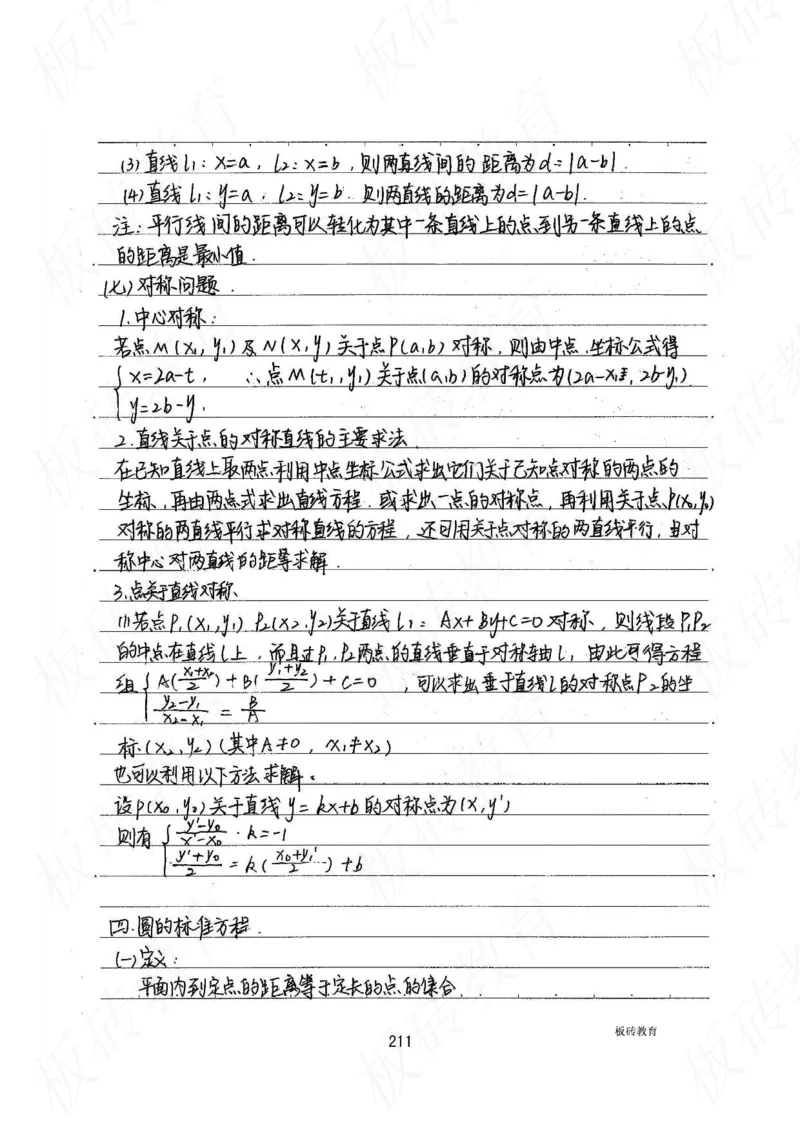 (3) 直线 l₁: x=a, l₂: x=b, 则两直线间的距离为d=|a-b|.
(4) 直线 l₁: y=a, l₂: y=b. 则两直线的距离为d=|a-b|.
注: 平行线间的距离可以转化为其中一条直线上的点到另一条直线上的点
的距离是最小值.
(七) 对称问题.
1.中心对称:
若点M(x₁, y₁)及N(x,y)关于点P(a,b)对称, 则由中点坐标公式得
{ x=2a-t, ∴点M(t₁,y₁)关于点(a,b)的对称点为(2a-x₁, 2b-y₁)
y=2b-y.
2.直线关于点的对称直线的主要求法
在已知直线上取两点利用中点坐标公式求出它们关于已知点对称的两点的
坐标, 再由两点式求出直线方程. 或求出一点的对称点, 再利用关于点P(x₀,y₀)
对称的两直线平行求对称直线的方程, 还可用关于点对称的两直线平行, 且对
称中心对两直线的距等求解.
3.点关于直线对称、
(1)若点P₁(x₁,y₁) P₂(x₂,y₂)关于直线l₁: Ax+By+C=0对称, 则线段P₁P₂
的中点在直线l上, 而且过P₁.P₂两点的直线垂直于对称轴l, 由此可得方程
组 { A((x₁+x₂)/2)+B((y₁+y₂)/2)+C=0 , 可以求出垂于直线l的对称点P₂的坐
(y₂-y₁)/(x₂-x₁) = B/A
标(x₂,y₂)(其中A≠0, x₁≠x₂)
也可以利用以下方法求解。
设P(x₀,y₀)关于直线y=kx+b的对称点为(x,y')
则有 { (y'-y₀)/(x'-x₀)·k=-1
(y'+y₀)/2 = k((x₀+y₁')/2)+b
四.圆的标准方程.
(一)定义:
平面内到定点的距离等于定长的点的集合.
板砖教育
211